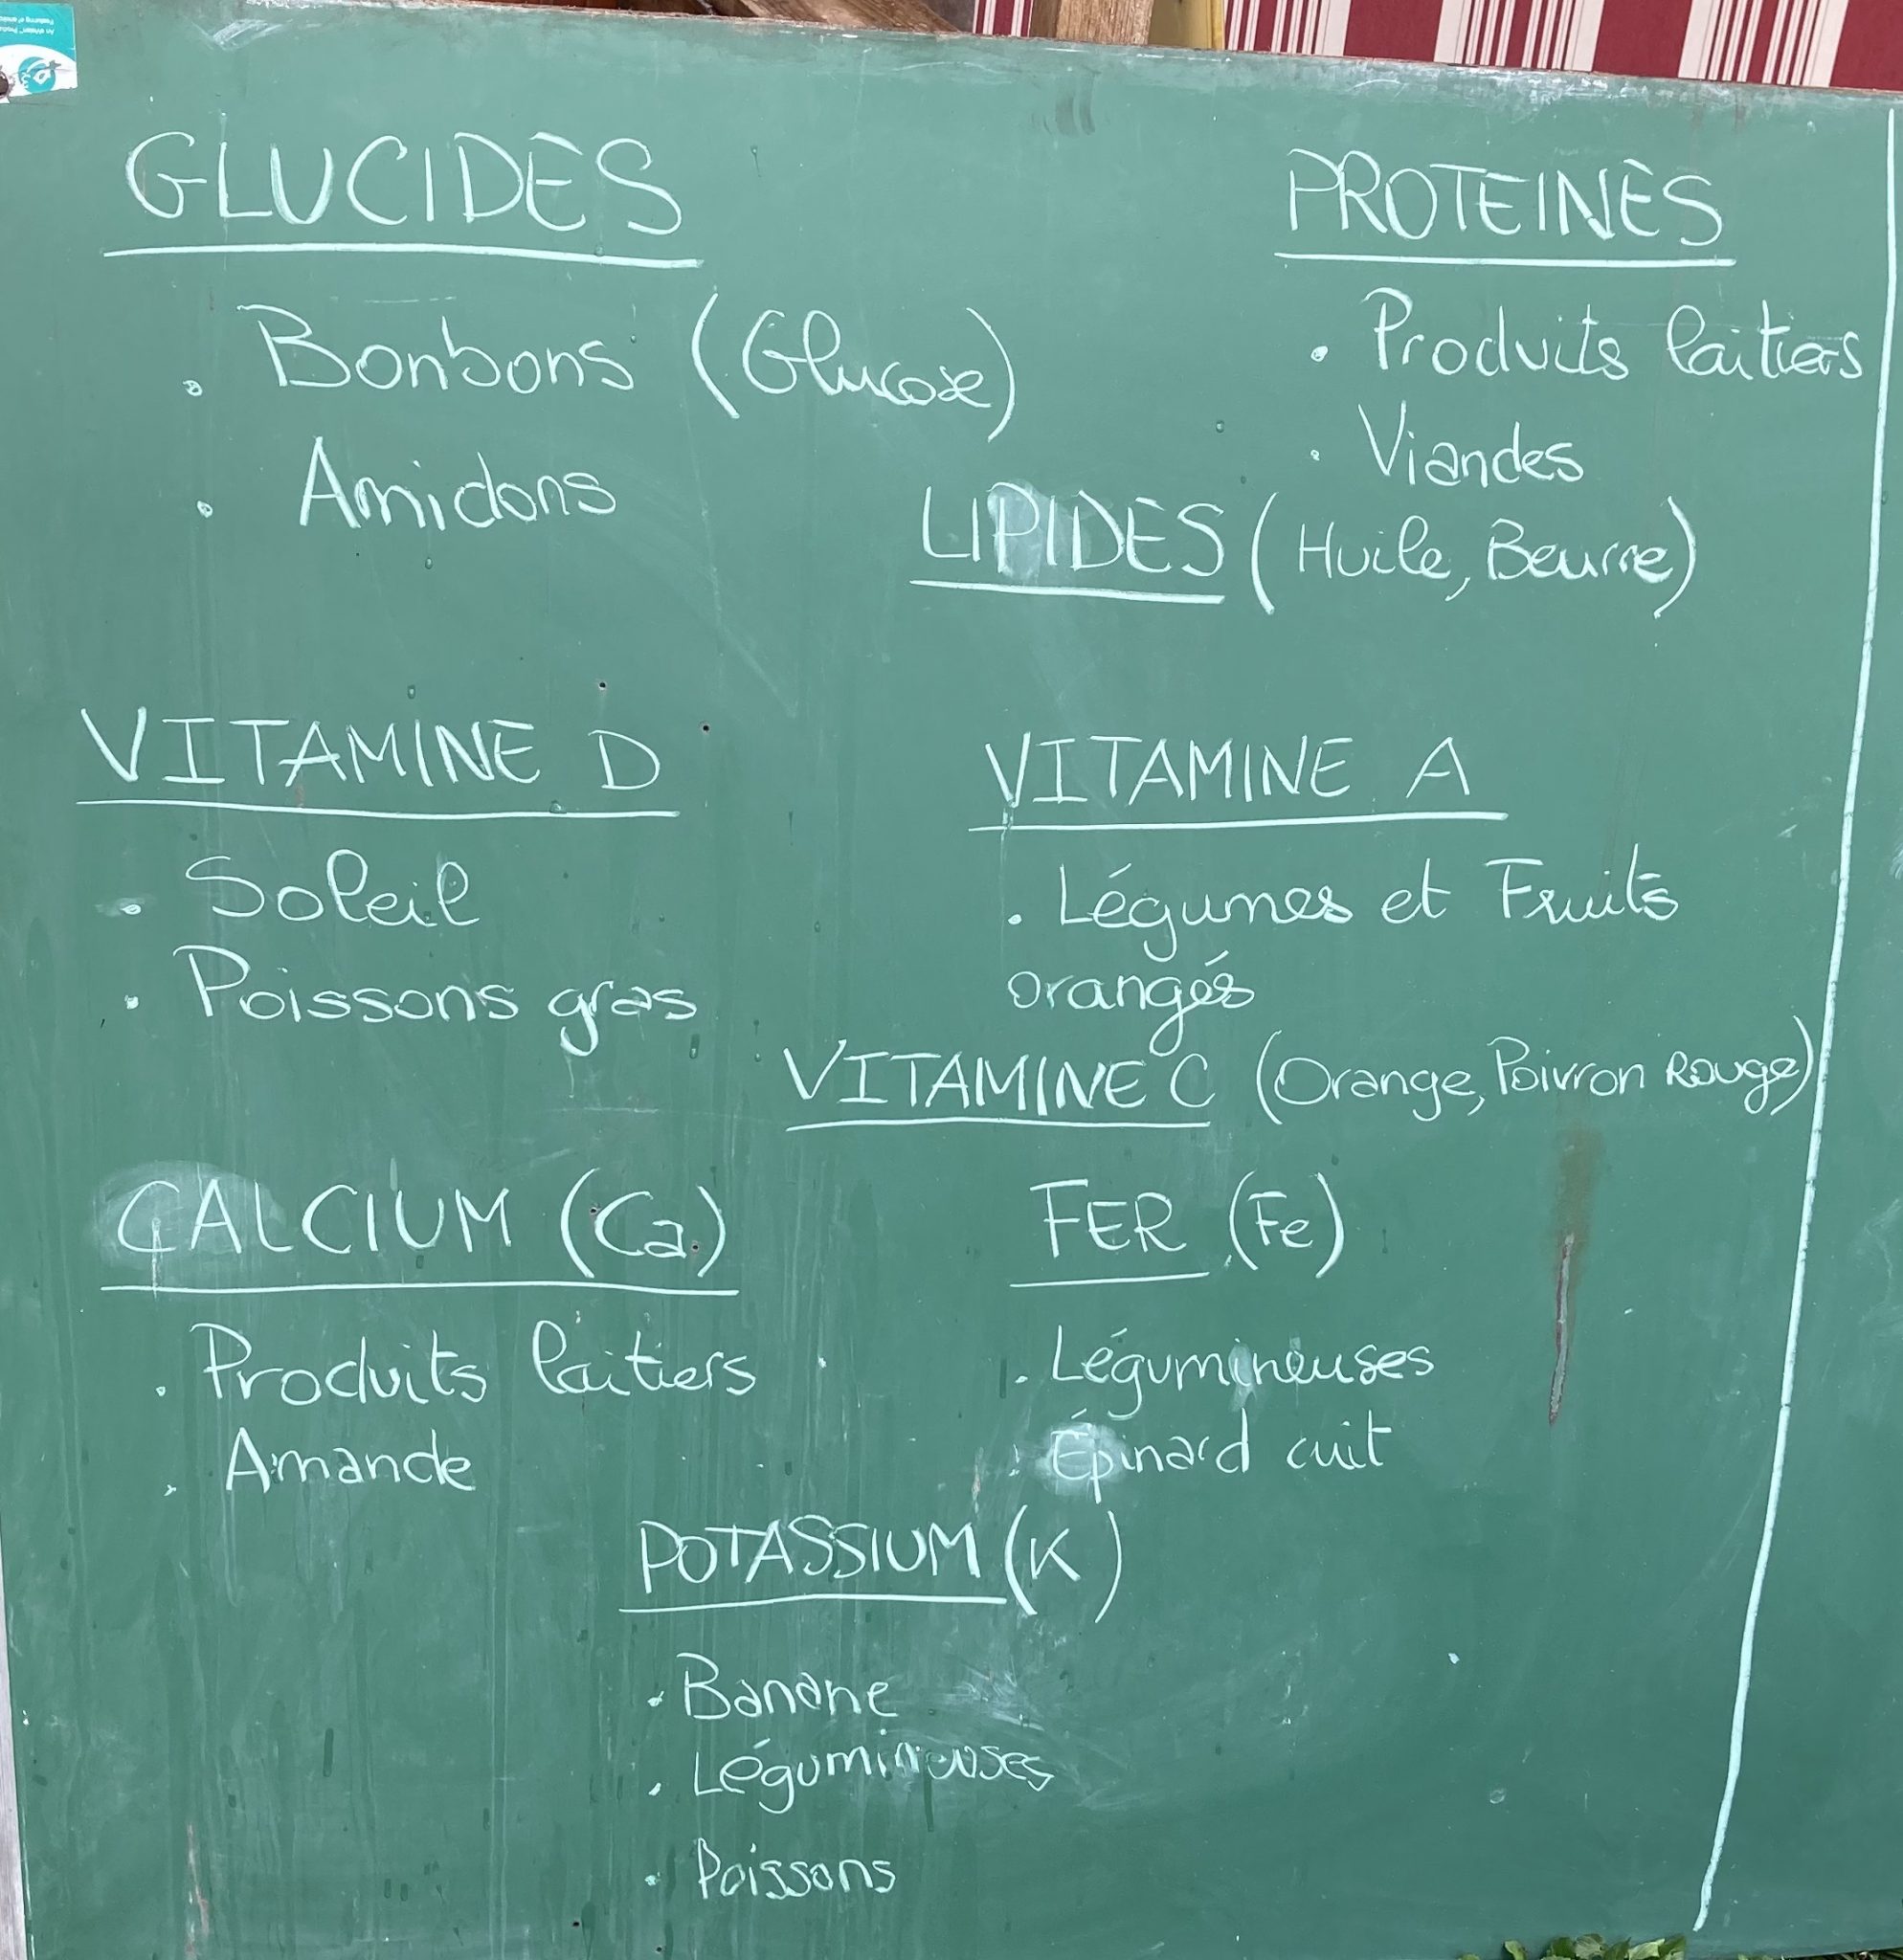 GLUCIDES
• Bonbons (Glucose)
• Amidons
PROTEINES
• Produits laitiers
• Viandes
LIPIDES (Huile, Beurre)
VITAMINE D
• Soleil
• Poissons gras
VITAMINE A
• Légumes et Fruits
orangés
VITAMINE C (Orange, Poivron Rouge)
CALCIUM (Ca)
• Produits laitiers
• Amande
FER (Fe)
• Légumineuses
• Épinard cuit
POTASSIUM (K)
• Banane
• Légumineuses
• Poissons